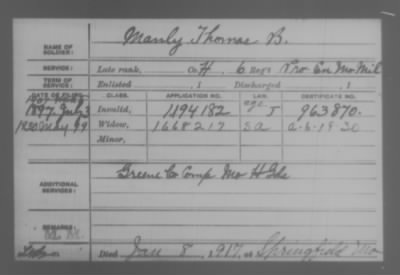 NAME OF SOLDIER: Manly Thomas B.
SERVICE: Late rank, Co. H, 6 Reg't Pro. En. Mo. Mil.
TERM OF SERVICE: Enlisted , 1 Discharged , 1
DATE OF FILING. CLASS. APPLICATION NO. LAW. CERTIFICATE NO.
1897 July 3 Invalid, 1194182 age J 963870.
1920 May 29 Widow, 1668217 a-6-1930
Minor,
ADDITIONAL SERVICES: Greene Co Comp Mo H Gds
REMARKS:
Died Jan 8, 1917, at Springfield Mo